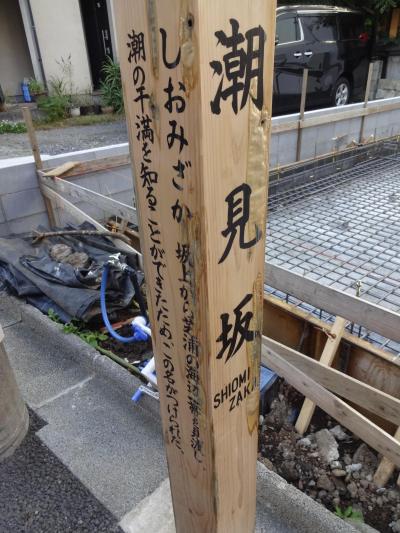 潮見坂
SHIOMI
ZAKA
しおみざか 坂上から芝浦の海辺一帯を見渡し
潮の干満を知ることができたため、この名がつけられた。